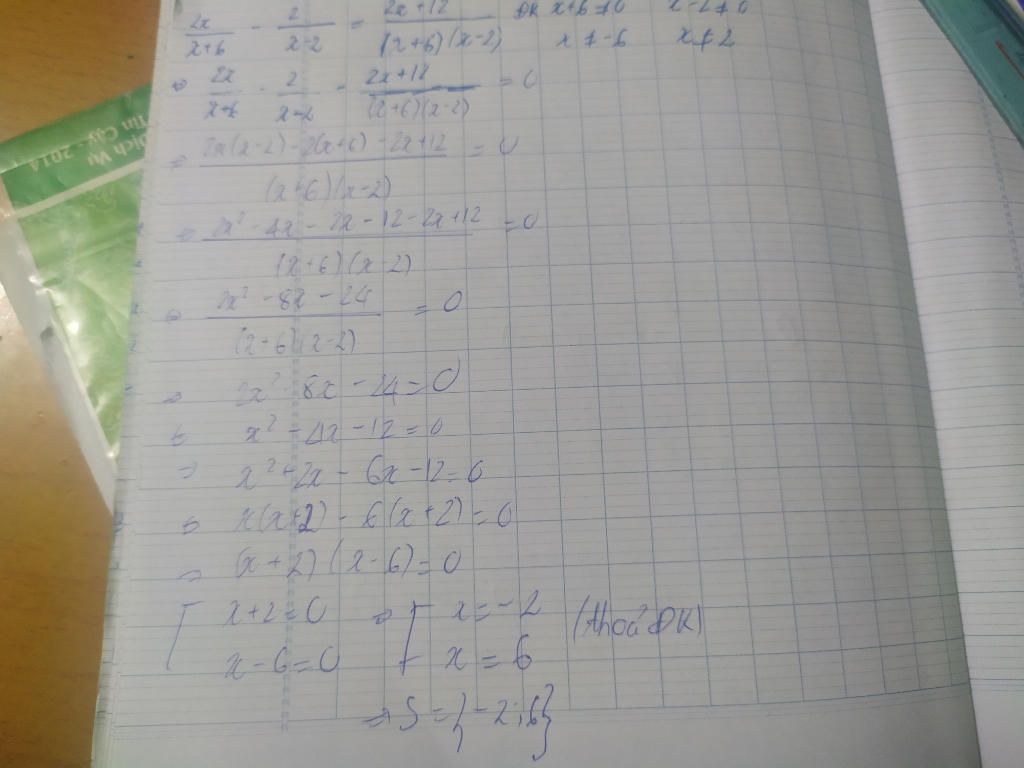 2x/(x+6) - 2/(x-2) = (2x+12)/((x+6)(x-2)) ĐK x+6≠0 x-2≠0
x≠-6 x≠2
⇒ 2x/(x+6) - 2/(x-2) - (2x+12)/((x+6)(x-2)) = 0
⇒ (2x(x-2) - 2(x+6) - 2x+12)/((x+6)(x-2)) = 0
⇒ (2x² - 4x - 2x - 12 - 2x + 12)/((x+6)(x-2)) = 0
⇒ (2x² - 8x - 24)/((x+6)(x-2)) = 0
⇒ 2x² - 8x - 24 = 0
⇒ x² - 4x - 12 = 0
⇒ x² + 2x - 6x - 12 = 0
⇒ x(x+2) - 6(x+2) = 0
⇒ (x+2)(x-6) = 0
[ x+2=0 ⇒ [ x=-2 (thoả ĐK)
x-6=0 x=6
⇒ S={-2;6}
Dịch Vụ